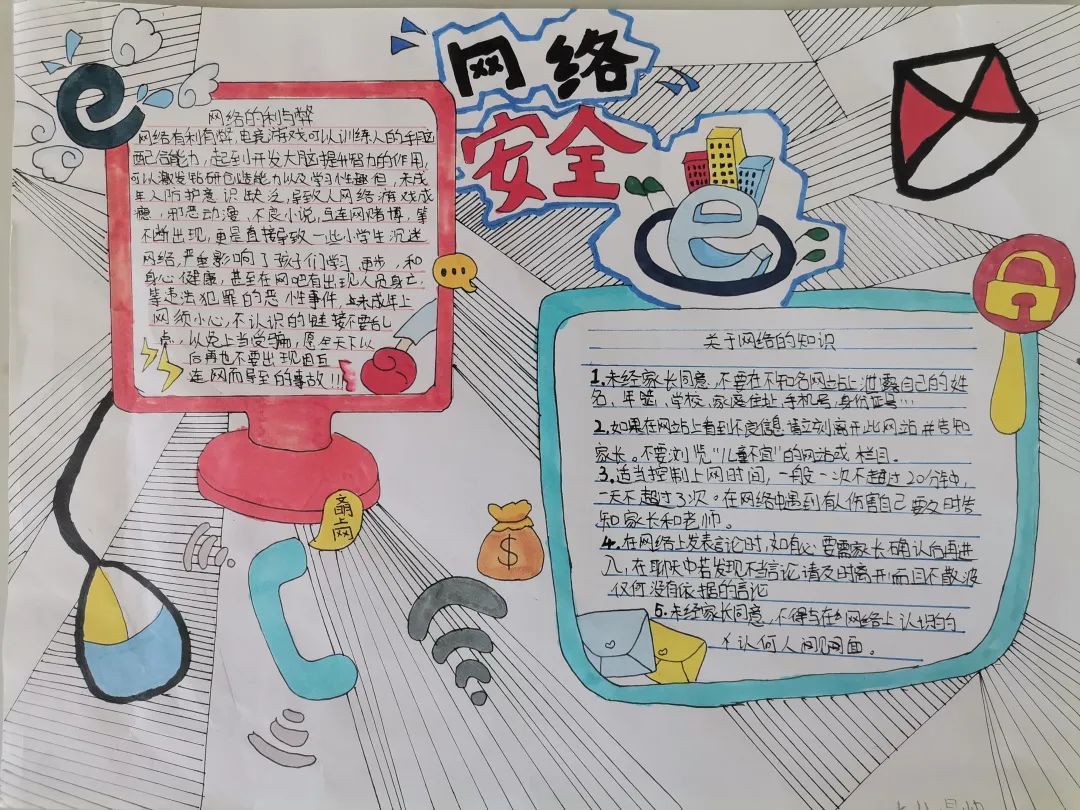 网络
安全
网络的利与弊
网络有利有弊,电竞游戏可以训练人的手脑
配合能力,起到开发大脑提升智力的作用,
可以激发钻研创造能力以及学习性趣但,未成
年人防护意识缺乏,导致人网络游戏成
瘾,邪恶动漫、不良小说,互连网赌博,等
不断出现,更是直接导致一些小学生沉迷
网络,严重影响了孩子们学习 进步,和
身心健康,甚至在网吧有出现人员身亡,
等违法犯罪的恶性事件,未成年上
网须小心,不认识的链接不要乱
点,以免上当受骗,愿全天下以
后再也不要出现因互
连网而导至的事故!!!
文明上网
$
关于网络的知识
1.未经家长同意,不要在不知名网站上泄露自己的姓
名、年龄、学校、家庭住址、手机号、身份证号…
2.如果在网站上看到不良信息请立刻离开此网站并告知
家长。不要浏览“儿童不宜”的网站或栏目。
3.适当控制上网时间,一般一次不超过20分钟,
一天不超过3次。在网络中遇到有人伤害自己要及时告
知家长和老师。
4.在网络上发表言论时,要需家长确认后再进
入,在聊天中若发现不当言论请及时离开,而且不散波
任何没有依据的言论
5.未经家长同意,不得与在网络上认识的
任何人间见面。